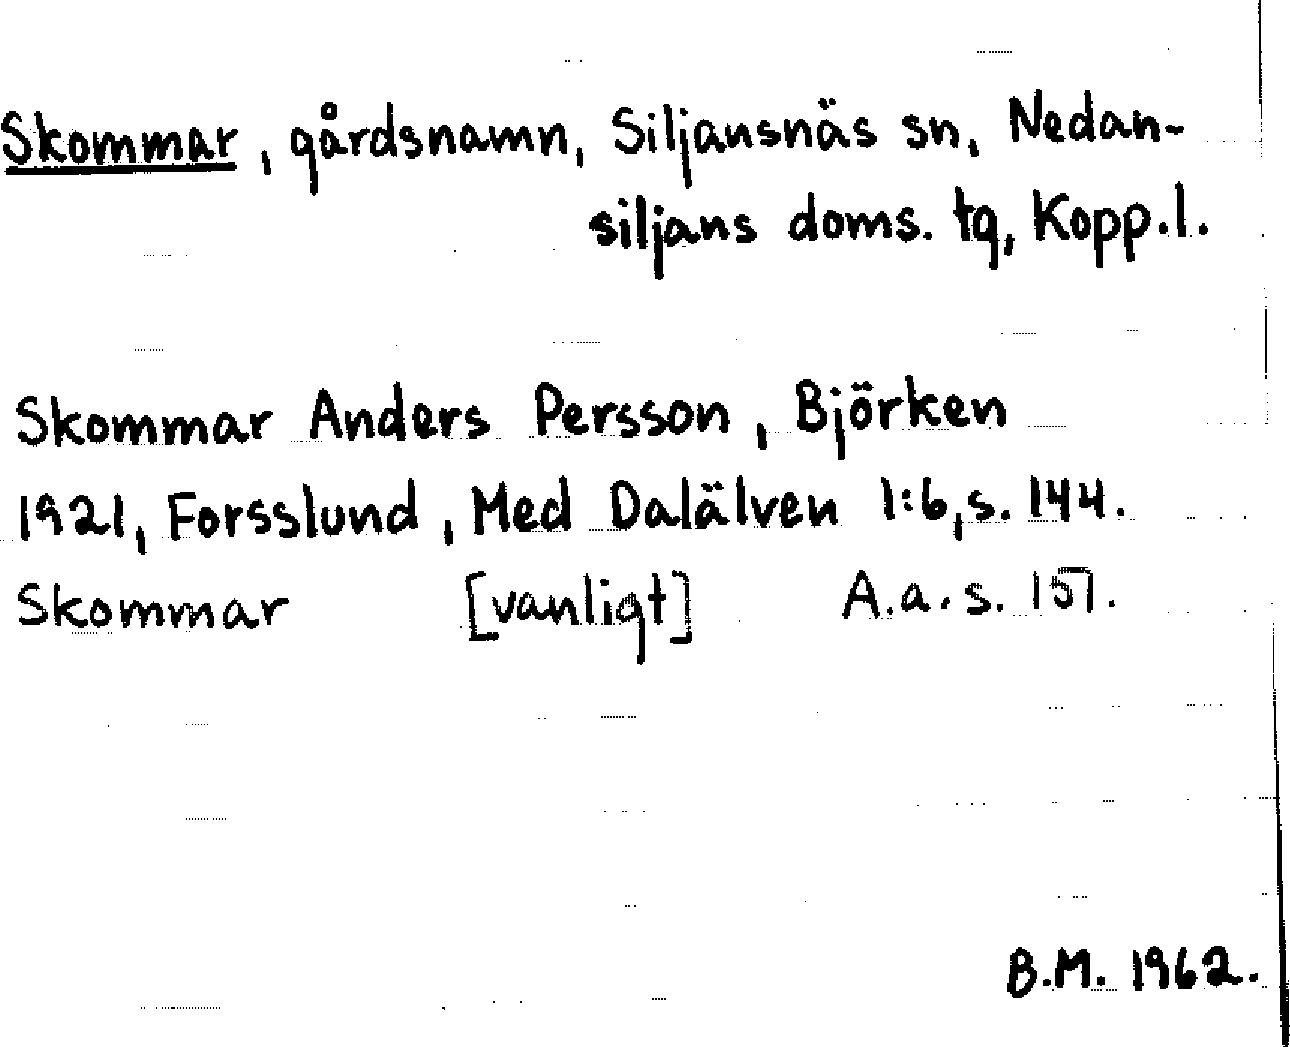 Skommar, gårdsnamn, Siljansnäs sn, Nedan-
siljans doms. tg, Kopp.l.
Skommar Anders Persson, Björken
1921, Forsslund, Med Dalälven 1:6, s. 144.
Skommar [vanligt] A.a. s. 157.
B.M. 1962.